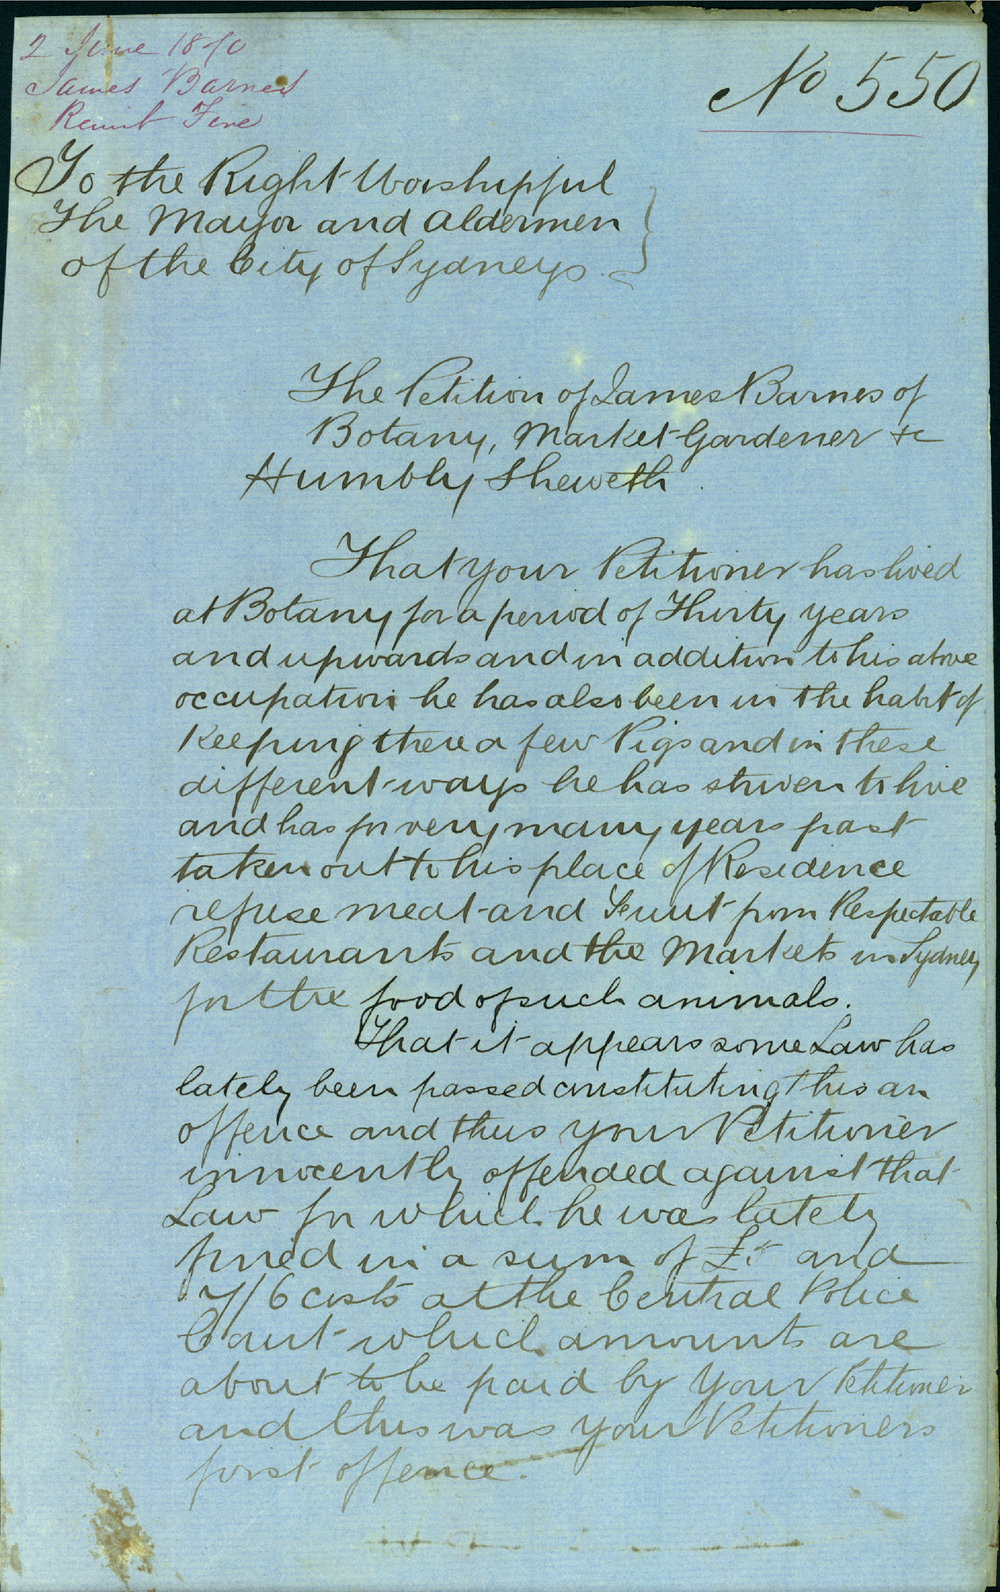 2 June 1870
James Barnes
Remit Fine
No 550
To the Right Worshipful
The Mayor and Aldermen
of the City of Sydney.
The Petition of James Barnes of
Botany, Market Gardener &c
Humbly Sheweth.
That your Petitioner has lived
at Botany for a period of Thirty years
and upwards and in addition to his above
occupation he has also been in the habit of
Keeping there a few Pigs and in these
different ways he has striven to live
and has for very many years past
taken out to his place of Residence
refuse meat and Fruit from Respectable
Restaurants and the Markets in Sydney
for the food of such animals.
That it appears some Law has
lately been passed constituting this an
offence and thus your Petitioner
innocently offended against that
Law for which he was lately
fined in a sum of £5 and
7/6 costs at the Central Police
Court which amounts are
about to be paid by your Petitioner
and this was your Petitioners
first offence.